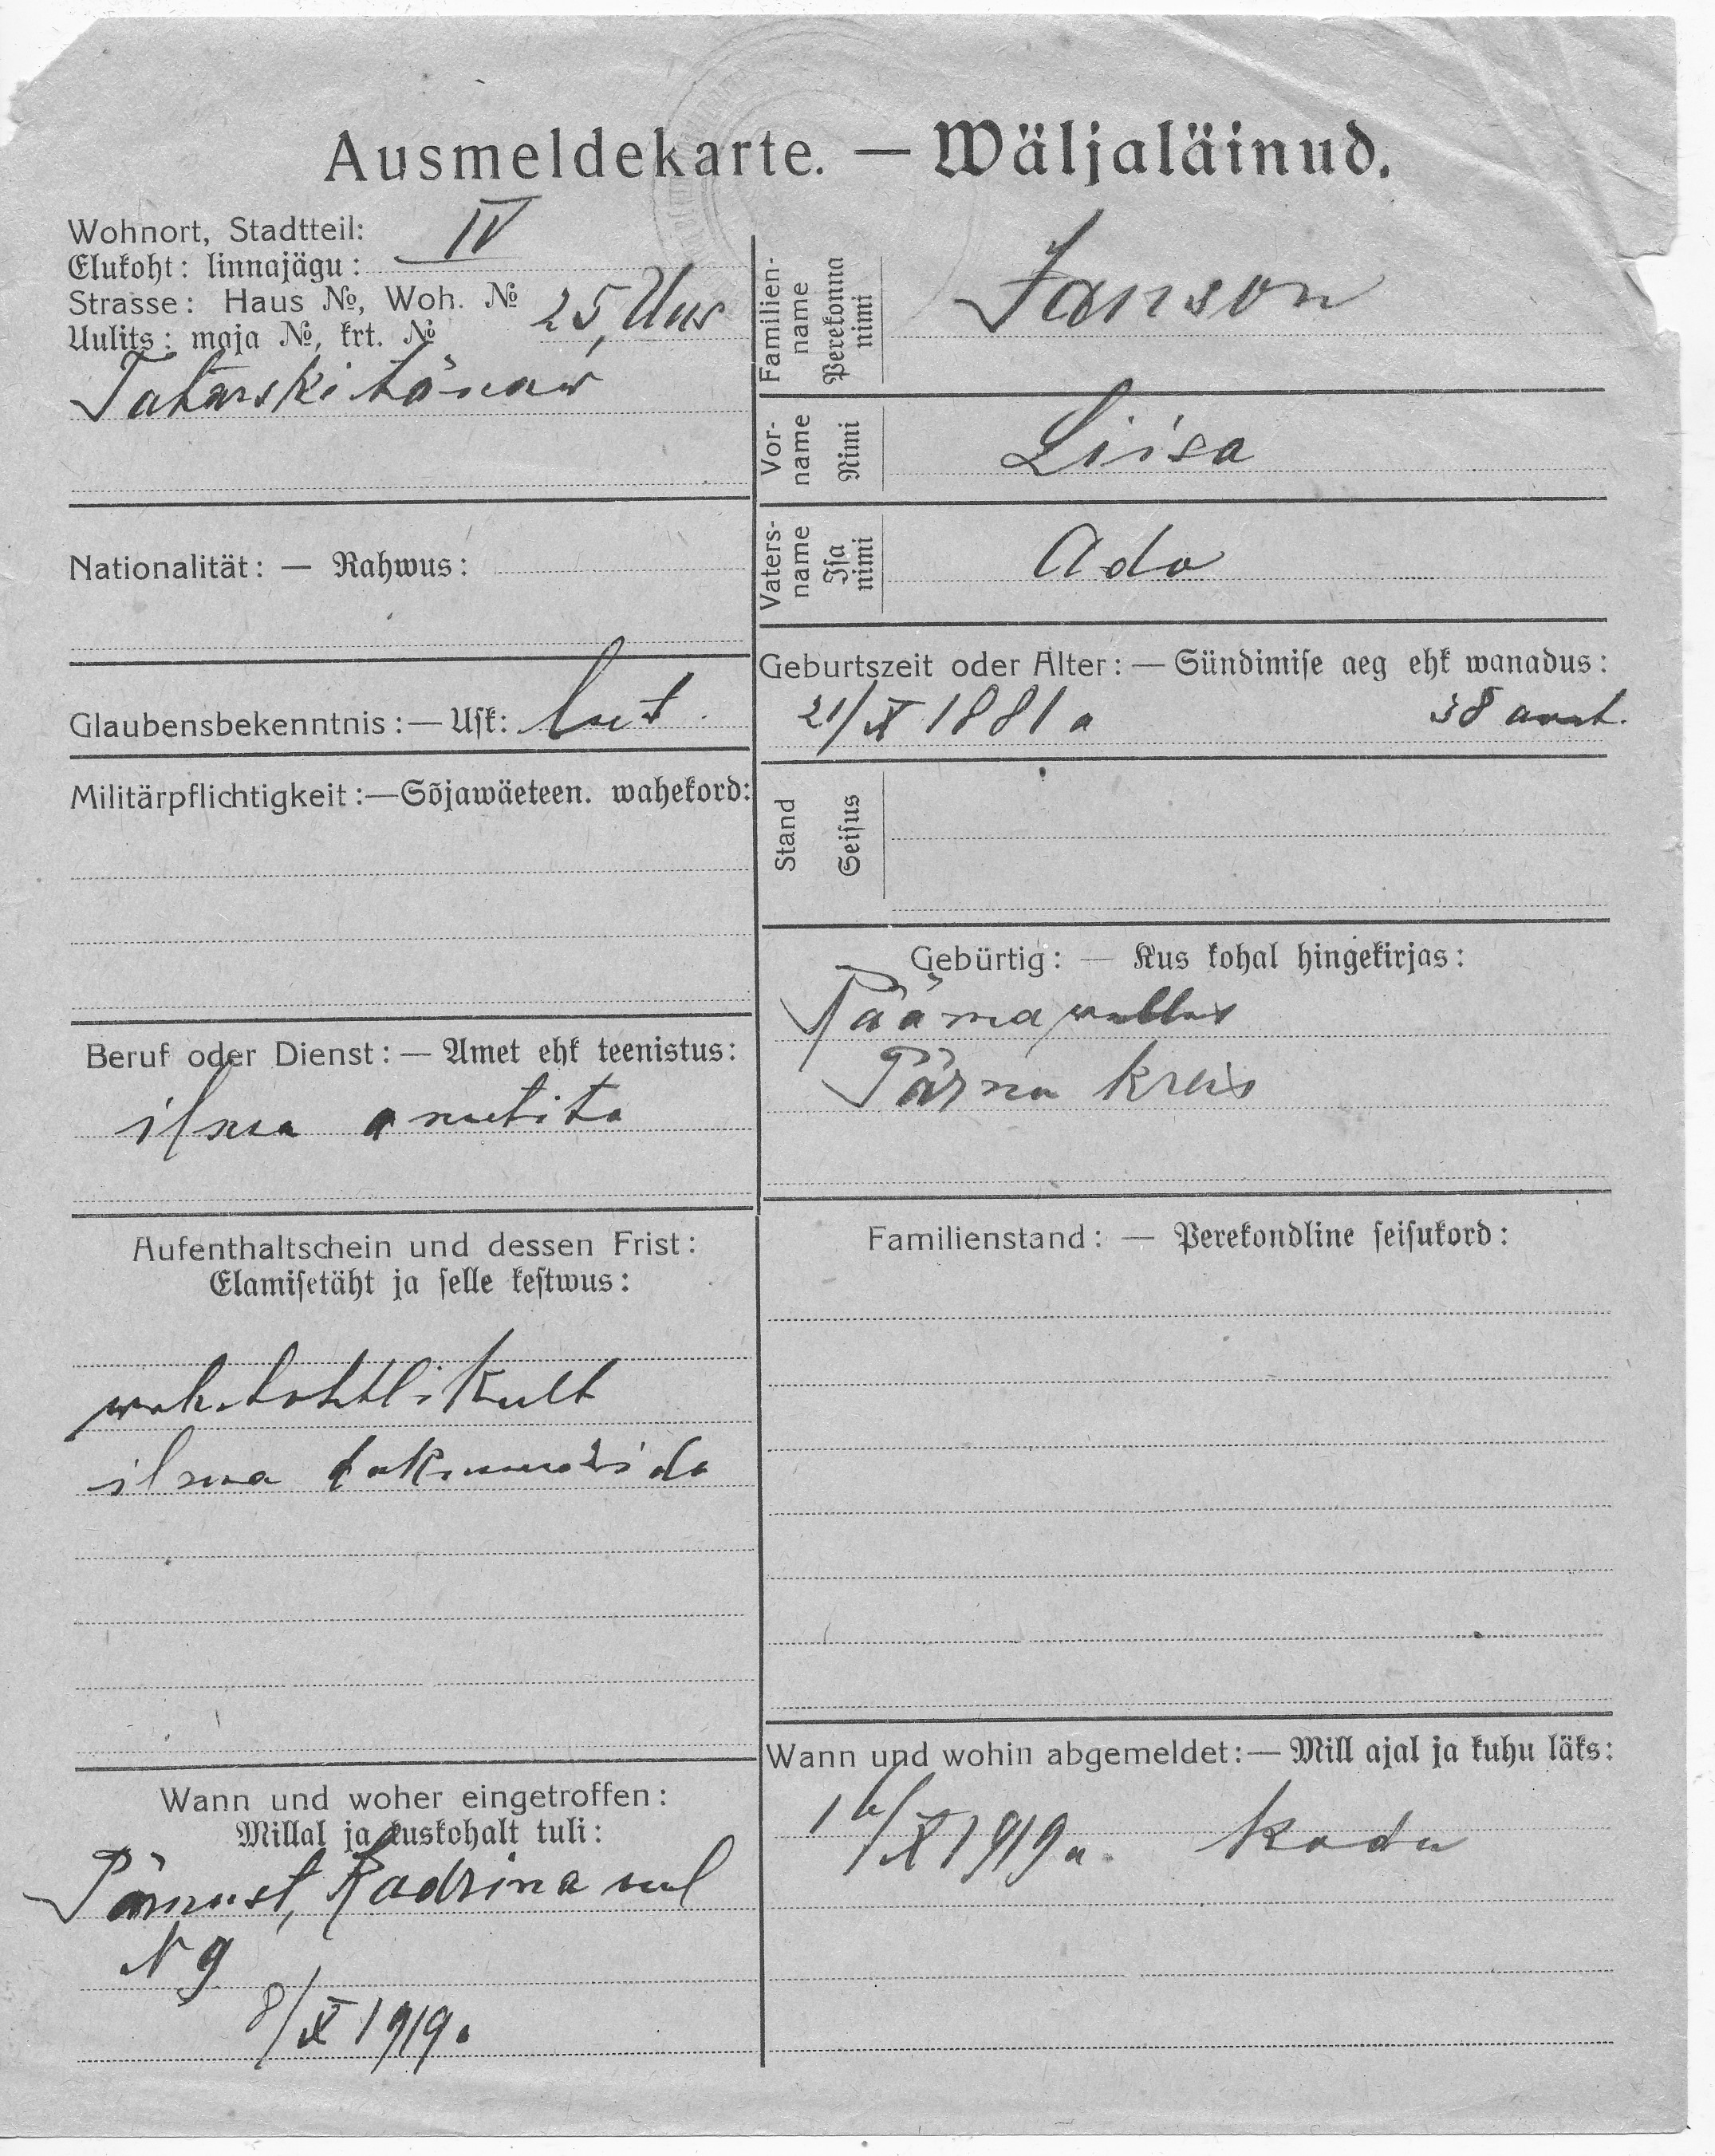 Ausmeldekarte. — Wäljaläinud.
Wohnort, Stadtteil: IV
Elukoht: linnajägu:
Strasse: Haus №, Woh. № 25, Uus
Uulits: maja №, krt. №
Tatarski tänaw
Nationalität: — Rahwus:
Glaubensbekenntnis: — Usk: lut.
Militärpflichtigkeit: — Sõjawäeteen. wahekord:
Beruf oder Dienst: — Amet ehk teenistus:
ilma ametita
Aufenthaltschein und dessen Frist:
Elamisetäht ja selle kestwus:
ilma
Wann und woher eingetroffen:
Millal ja kuskohalt tuli:
Pärnust, Kadrina uul
N 9
8/X 1919.
Familien-name Perekonna nimi Janson
Vor-name Nimi Liisa
Vaters-name Isa nimi Ado
Geburtszeit oder Alter: — Sündimise aeg ehk wanadus:
21/X 1881 a 38 aast.
Stand Seisus
Gebürtig: — Kus kohal hingekirjas:
wallas
Pärnu kreis
Familienstand: — Perekondline seisukord:
Wann und wohin abgemeldet: — Mill ajal ja kuhu läks:
/X 1919 a. kodu